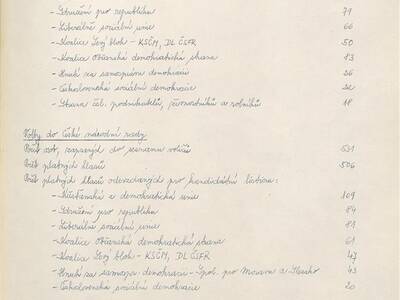 - Sdružení pro republiku 71
- Liberálně sociální unie 66
- Koalice Levý blok - KSČM, DL ČSFR 50
- Koalice Občanská demokratická strana 83
- Hnutí za samosprávn. demokracii 26
- Československá sociální demokracie 22
- Strana čsl. podnikatelů, živnostníků a rolníků 18
Volby do České národní rady
Počet osob, zapsaných do seznamu voličů 531
Počet platných hlasů 506
Počet platných hlasů odevzdaných pro kandidátní listinu:
- Křesťanská a demokratická unie 109
- Sdružení pro republiku 84
- Liberálně sociální unie 81
- Koalice Občanská demokratická strana 61
- Koalice Levý blok - KSČM, DL ČSFR 47
- Hnutí za samospr. demokracii - Spol. pro Moravu a Slezsko 43
- Československá sociální demokracie 20